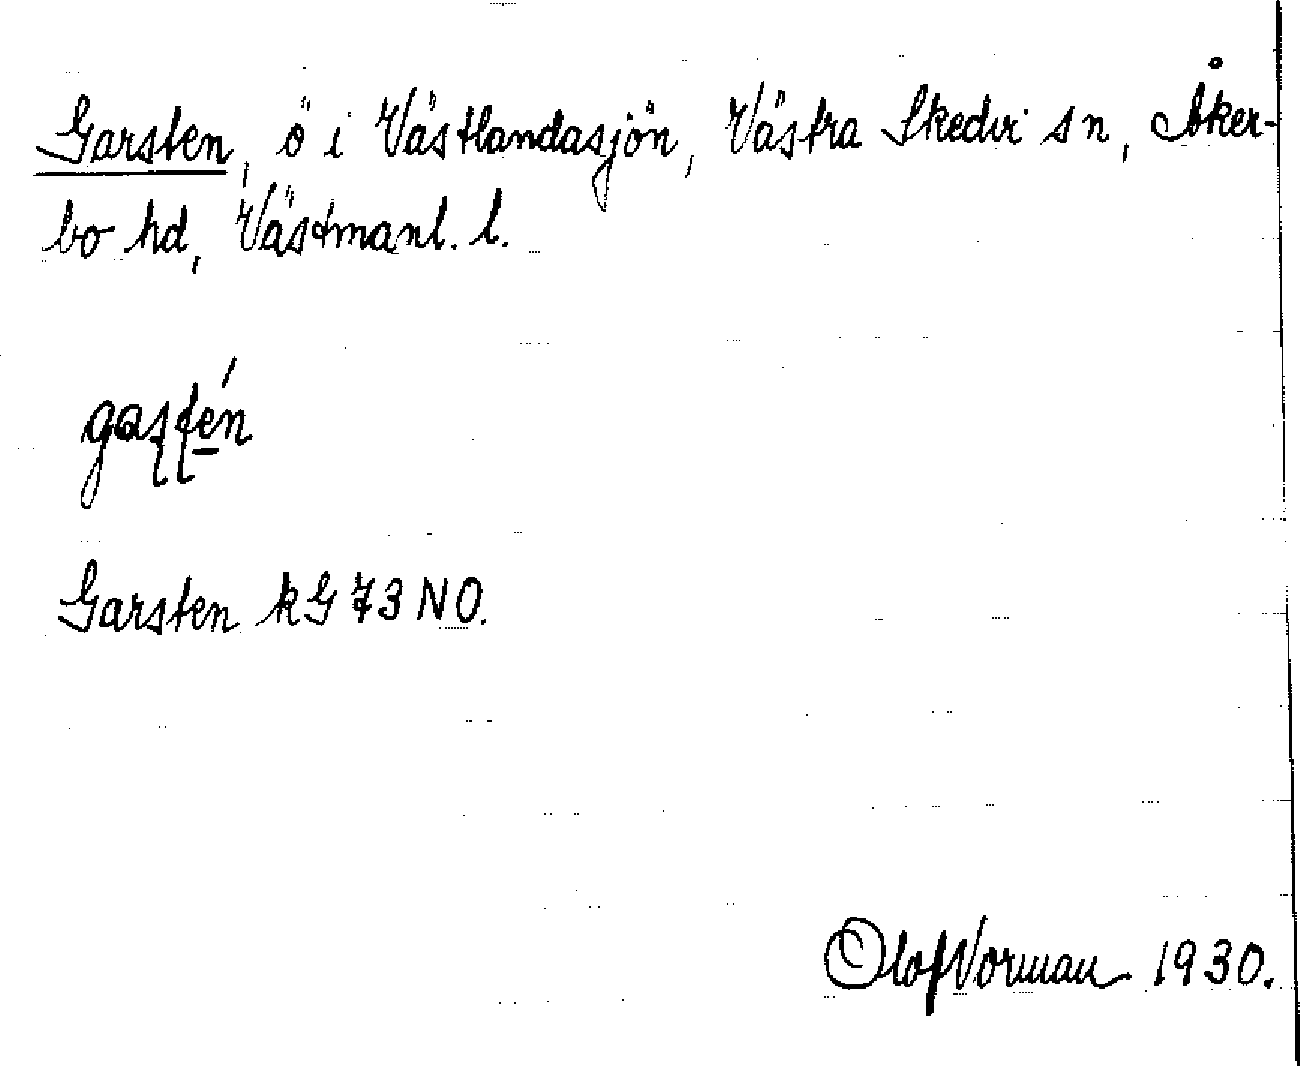 Garsten, ö i Västlandasjön, Västra Skedvi sn, Åker-
bo hd, Västmanl. l.
Garsten kG 73 NO.
Olof Vorman 1930.